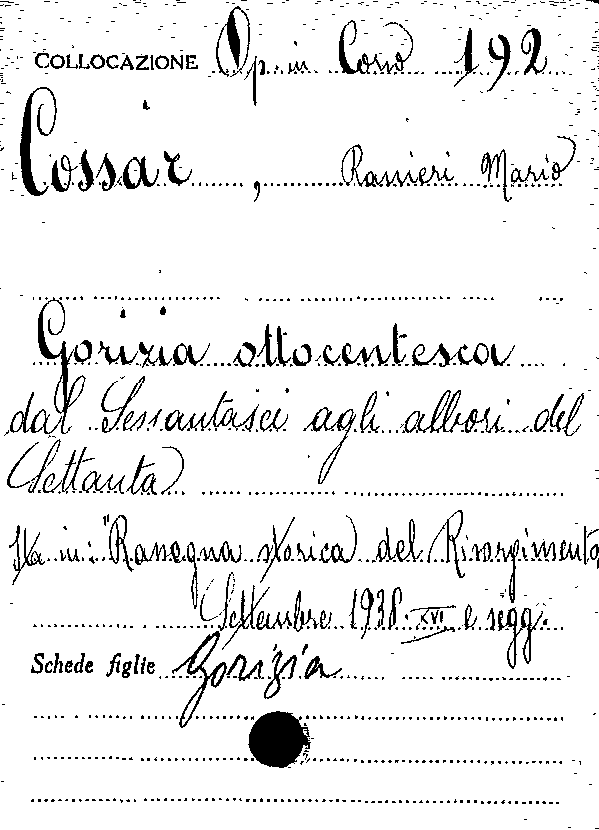 COLLOCAZIONE Op. in Corso 192
Cossàr, Ranieri Mario
Gorizia ottocentesca
dal Sessantasei agli albori del
Settanta
Sta in: "Rassegna storica del Risorgimento
Settembre 1938. XVI e segg.
Schede figlie Gorizia